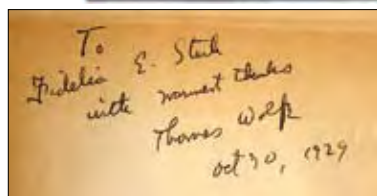 To
Fidelia E. Stark
with warmest thanks
Thomas Wolfe
Oct 30, 1929